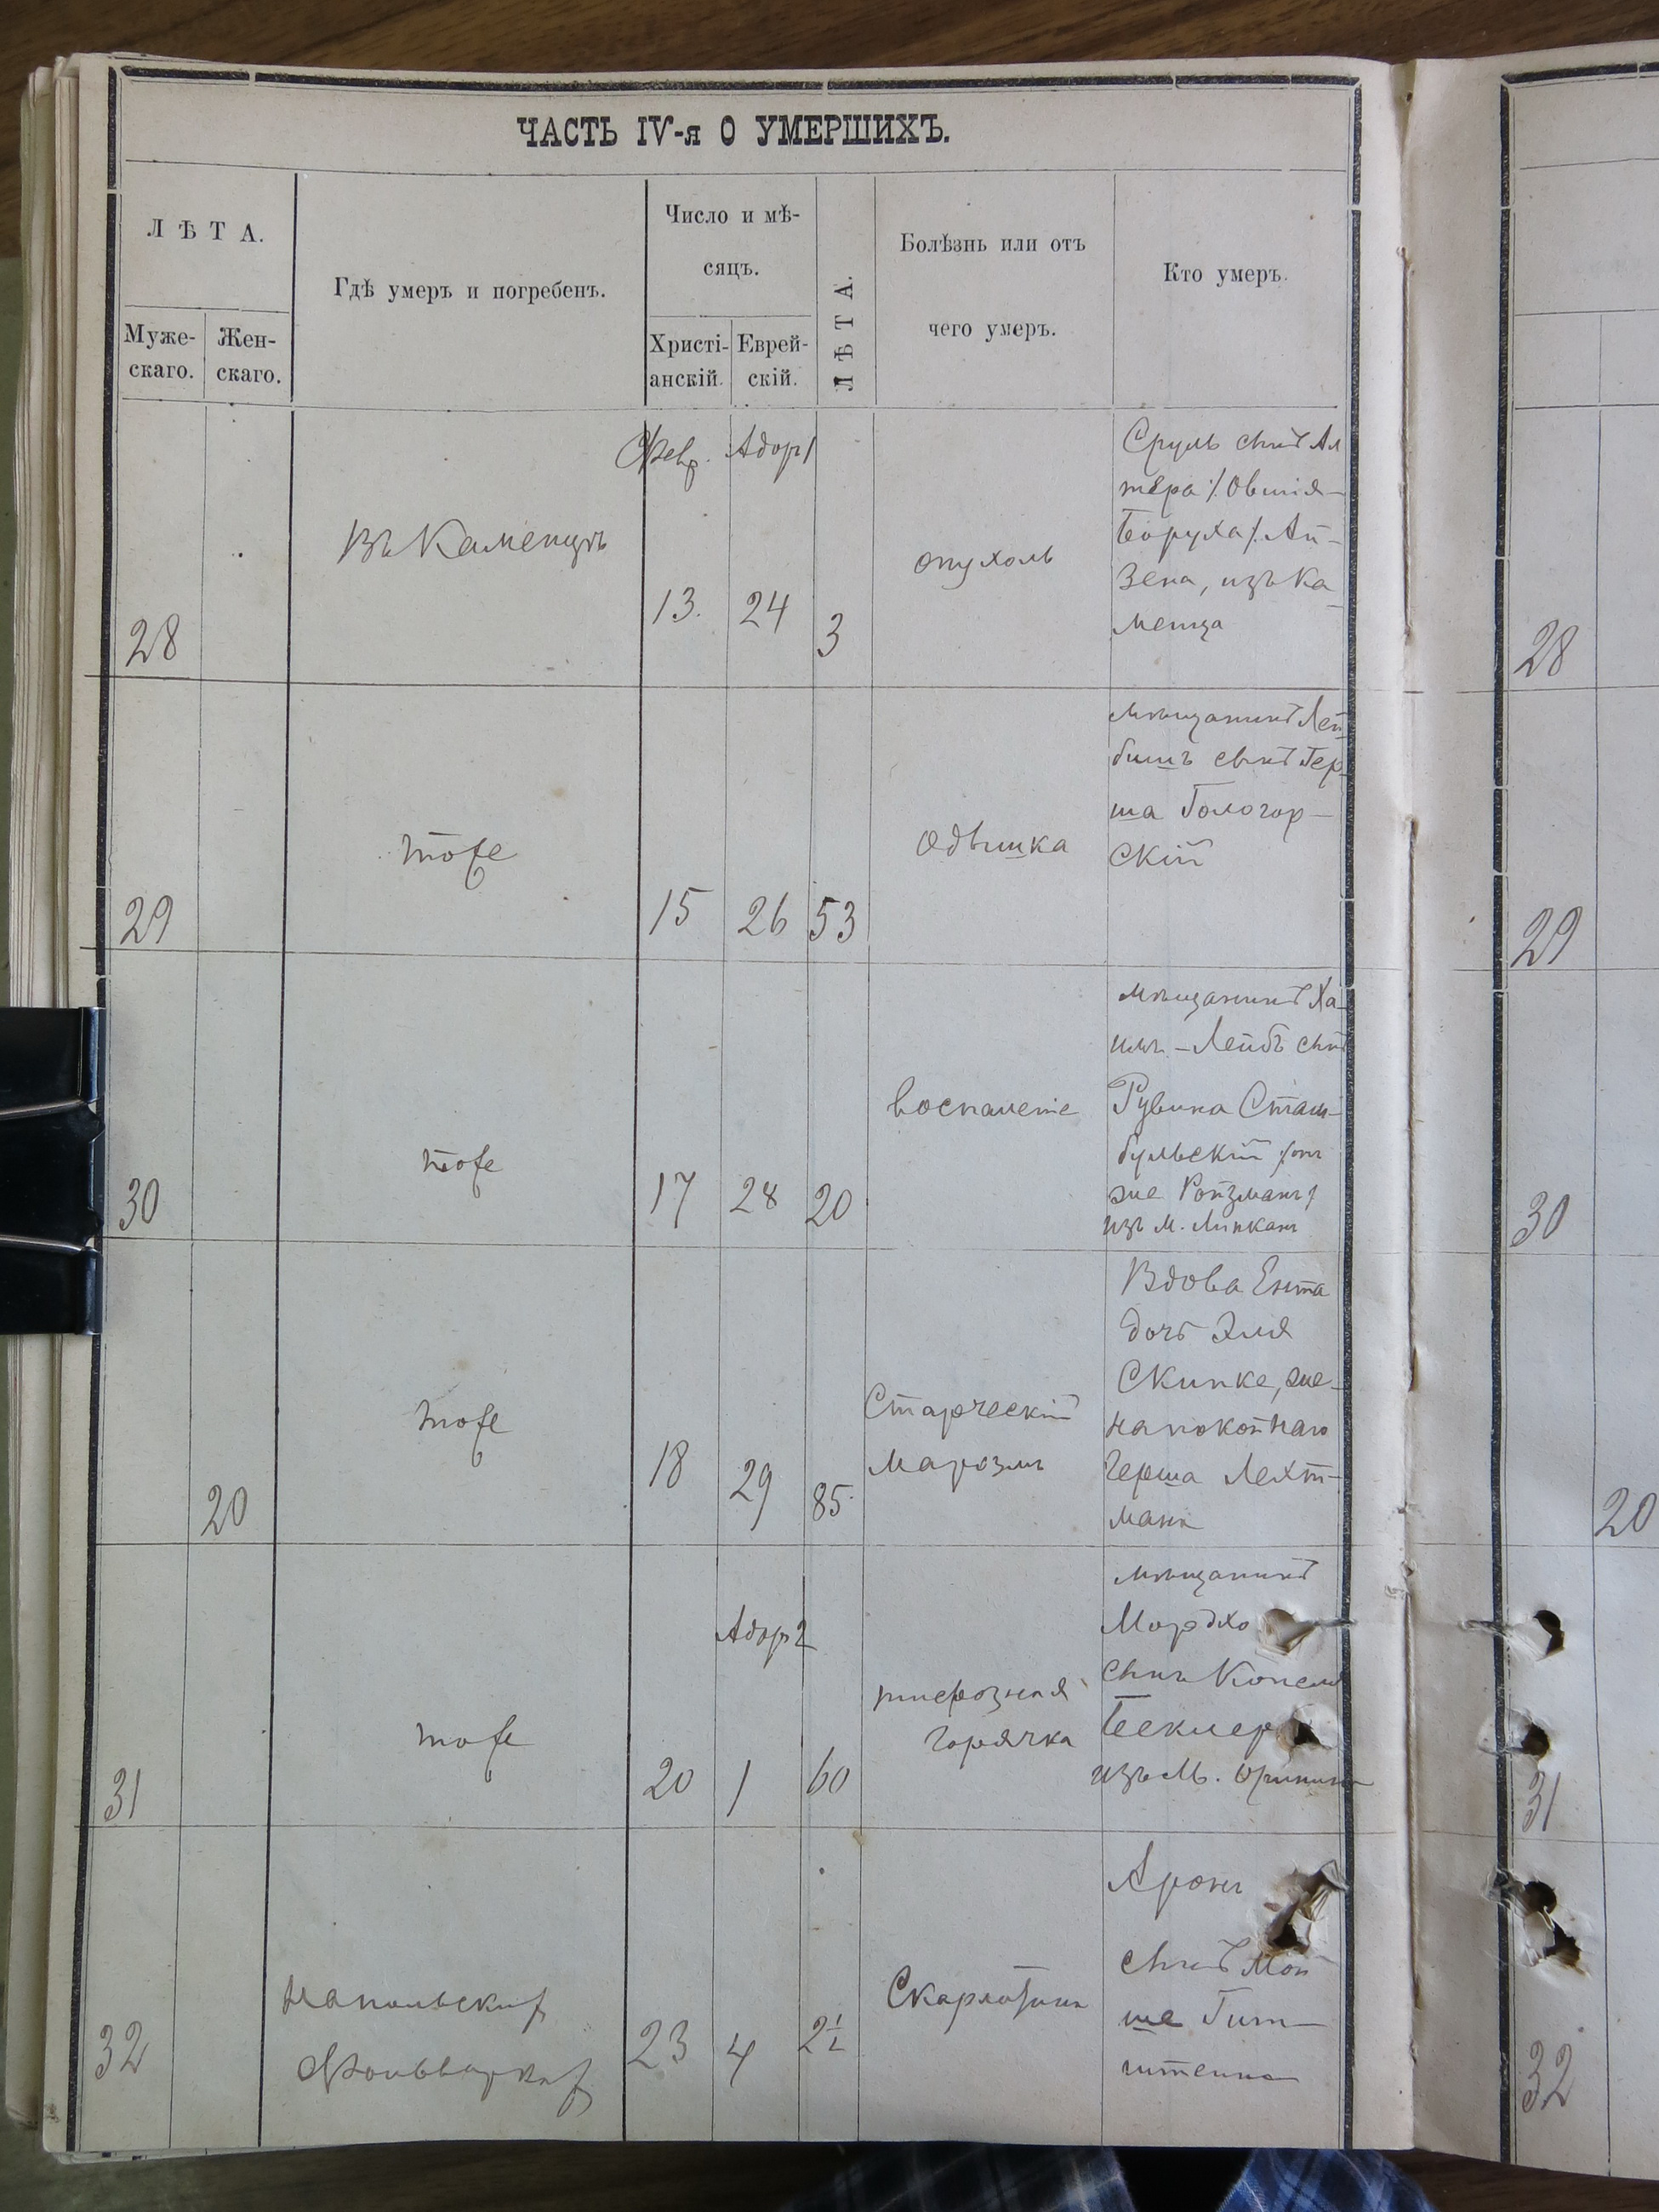 ЧАСТЬ IV-я О УМЕРШИХЪ.
ЛѢТА.
Муже-
скаго.
Жен-
скаго.
Гдѣ умеръ и погребенъ.
Число и мѣ-
сяцъ.
Христі-
анскій.
Еврей-
скій.
ЛѢТА.
Болѣзнь или отъ
чего умеръ.
Кто умеръ.
28
Въ Каменцѣ
Февр.
13.
Адоръ 1
24
3
опухоль
Сруль сынъ Ал
тера /Овшія-
Боруха/ Ай-
зена, изъ Ка
менца
28
29
тоже
15
26
53
одышка
мѣщанинъ Лей
бишъ сынъ Гер
ша Гологор-
скій
29
30
тоже
17
28
20
воспаленіе
мѣщанинъ Ха
имъ-Лейбъ сынъ
Рувина Стам-
бульскій /онъ
же Ройзманъ/
изъ м. Липканъ
30
20
тоже
18
29
85
Старческій
маразмъ
Вдова Ента
дочь Эля
Скипке, же-
на покойнаго
Герша Лехт-
мана
20
31
тоже
20
Адоръ 2
1
60
тифозная
горячка
мѣщанинъ
Мордхо
сынъ Копеля
Бееклер
изъ м.
31
32
Напольскихъ
Фольваркахъ
23
4
2½
Скарлатина
Аронъ
сынъ Мой
ше Гит-
32